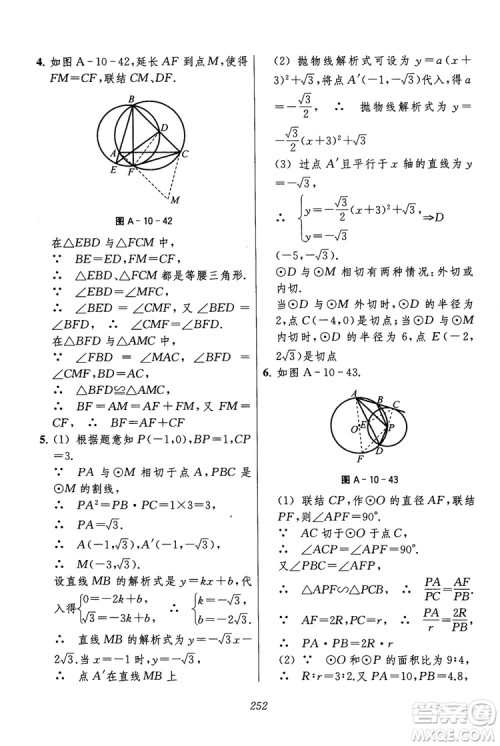 4. 如图 A-10-42,延长 AF 到点 M,使得
FM=CF,联结 CM、DF.
B
D
A
C
E
F
M
图 A-10-42
在△EBD 与△FCM 中,
∵ BE=ED,FM=CF,
∠BED=∠MFC,
∴ △EBD、△FCM 都是等腰三角形.
∴ ∠BED=∠MFC,
∴ ∠BED=∠CMF,又∵ ∠BED=
∠BFD=∠CMF.
在△BFD 与△AMC 中,
∵ ∠FBD=∠MAC,∠BFD=
∠CMF,BD=AC,
∴ △BFD≌△AMC
∴ BF=AM=AF+FM=AF+
CF.
5. (1) 根据题意知 P(-1,0),PB=1,CP
=3.
∵ PA 与⊙M 相切于点 A,PBC 是
⊙M 的割线,
∴ PA²=PB·PC=1×3=3.
∴ PA=√3,
∴ A(-1,√3),A′(-1,-√3),
∴ M(-3,√3).
设直线 MB 的解析式为 y=kx+b,代
入得{0=-2k+b, √3=-3k+b ∴ {k=-√3, b=-2√3
∴ 直线 MB 的解析式为 y=-√3x
-2√3,
∴ 点 A′在直线 MB 上.
(2) 抛物线解析式可设为 y=a(x+
3)²+√3,将点 A′(-1,-√3)代入,得 a
=-√3/2, ∴ 抛物线解析式为 y=
-√3/2(x+3)²+√3.
(3) 过点 A′且平行于 x 轴的直线为 y
=-√3,
∴ {y=-√3/2(x+3)²+√3, y=-√3 ⇒D
(-5,-√3).
⊙D 与⊙M 相切有两种情况:外切或
内切.
当⊙D 与⊙M 外切时,⊙D 的半径为
2,点 C(-4,0)是切点;当⊙D 与⊙M
内切时,⊙D 的半径为 6,点 E(-2,
2√3)是切点
6. 如图 A-10-43.
A
B
C
E
O
P
D
F
图 A-10-43
(1) 联结⊙O 的直径 AF,联结
PF,则∠APF=90°.
∵ AC 切于⊙O 于点 A,
∴ ∠PCA=90°.
又∠PAC=∠F,
∴ △APF∽△PCA, ∴ PA/PC=AF/PB.
∵ AF=2R,PC=r, ∴ PA/r=2R/PB,
∴ PA·PB=2R·r.
(2) ∵ ⊙O 与⊙P 的面积为 9:4,
∴ R:r=3:2,∵ PA=10,PB=4.8,
252